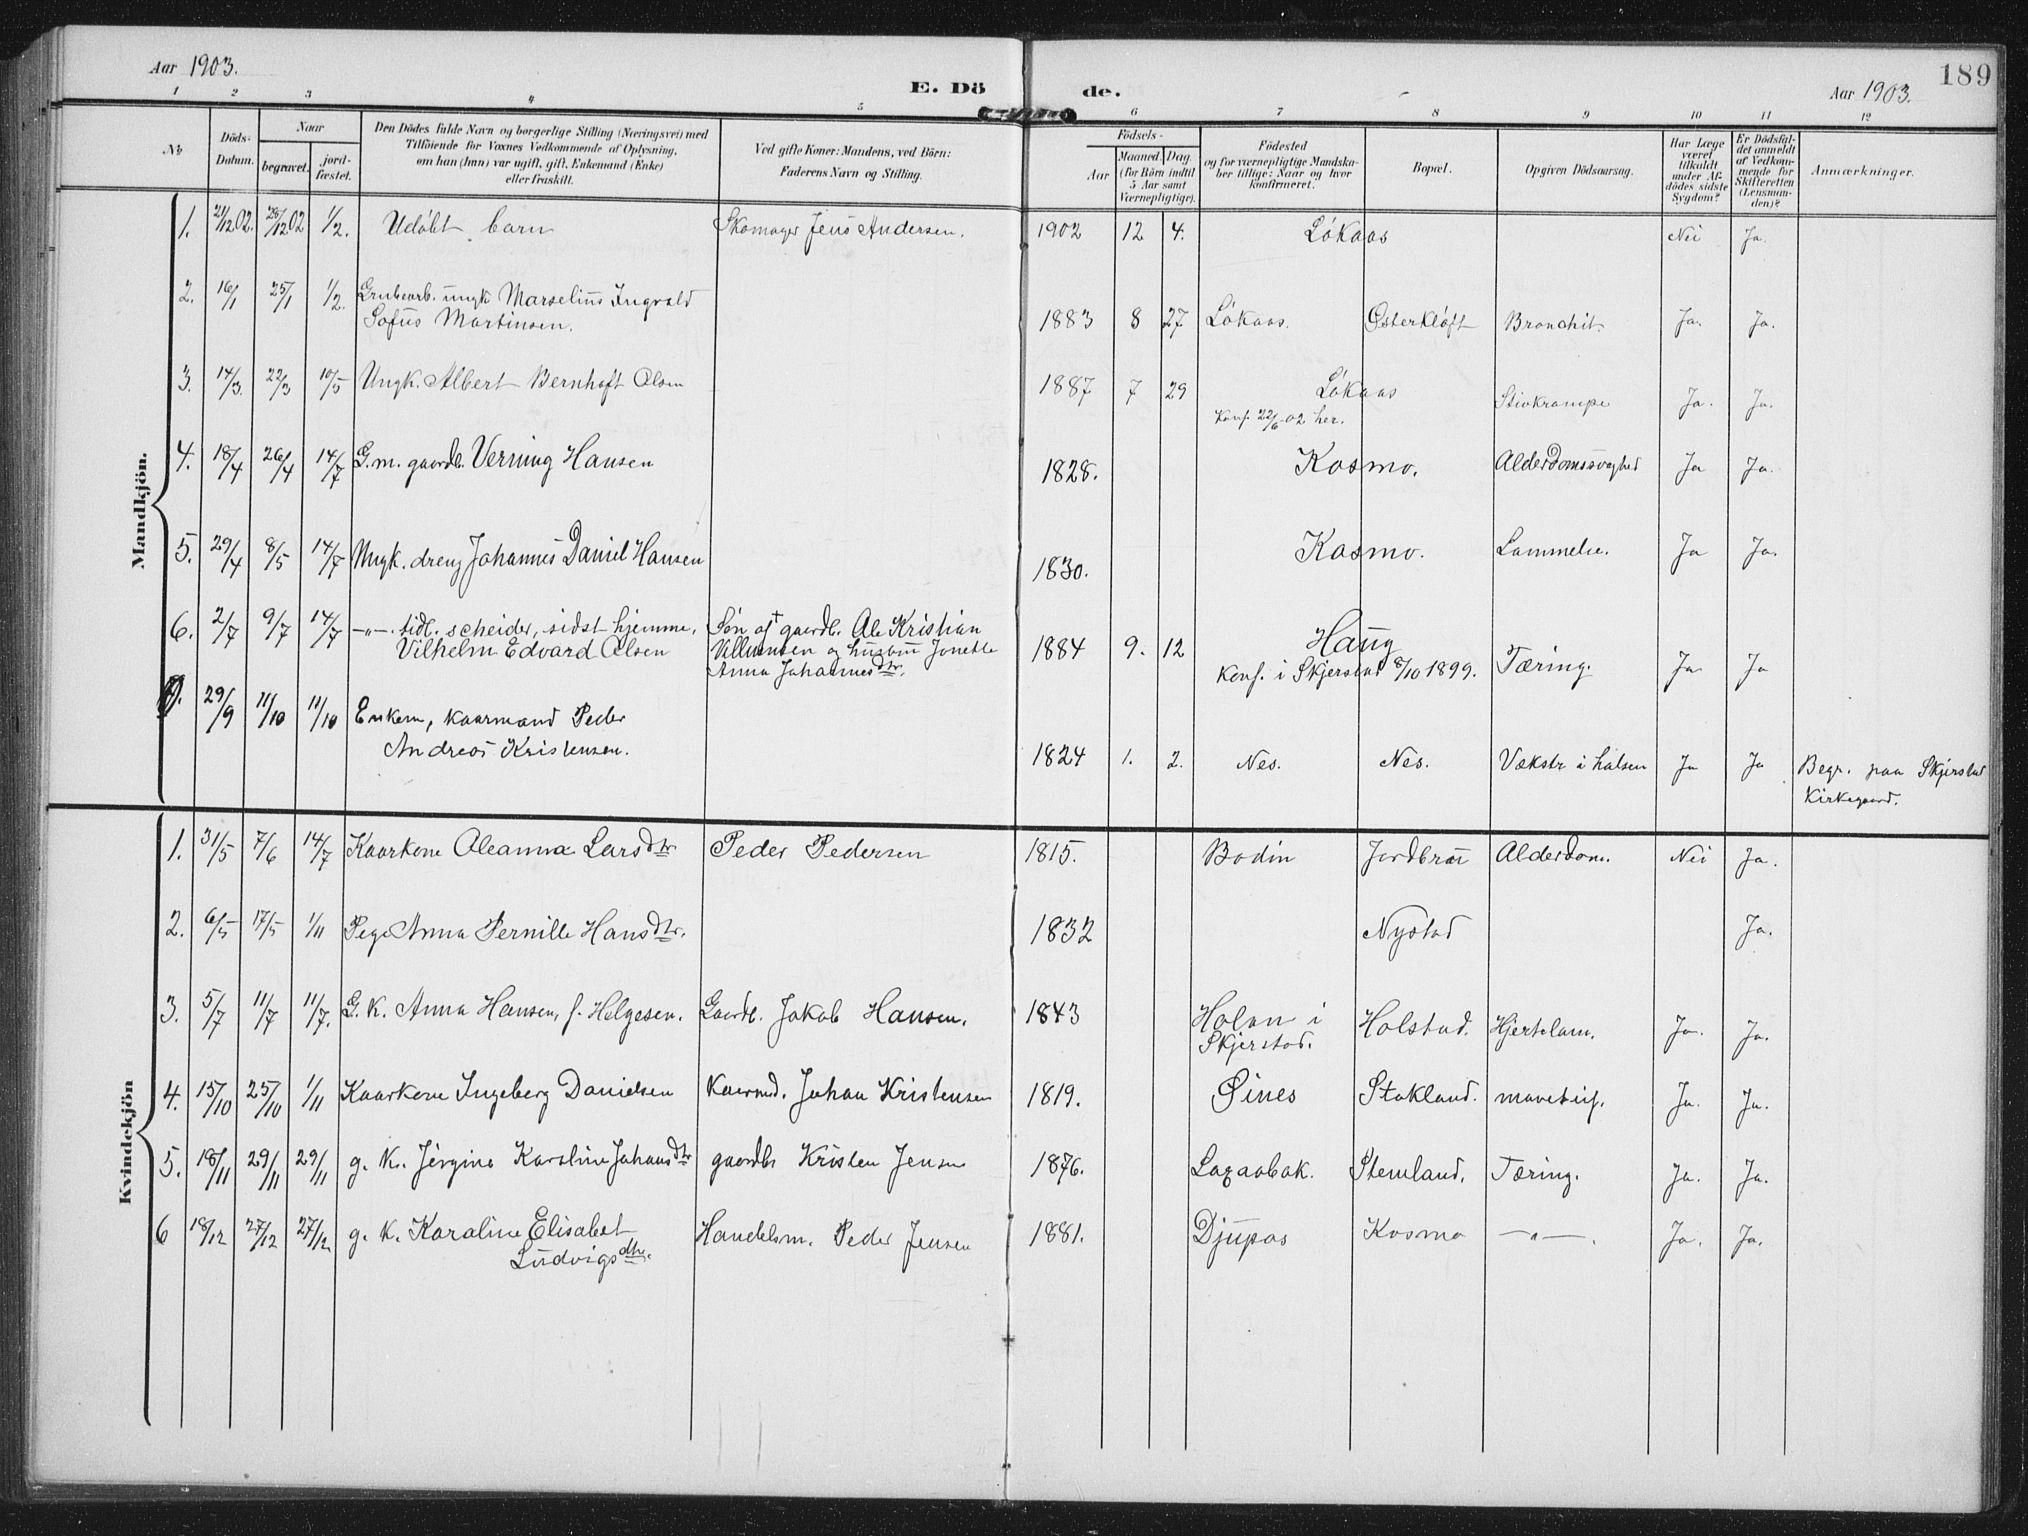 Aar 1903.
E. Dö de.
Aar 1903.
189
1 2 3 4 5 6 7 8 9 10 11 12
No
Döds-Datum.
Naar
begravet.
jord-fæstet.
Den Dödes fulde Navn og borgerlige Stilling (Næringsvei) med
Tilföiende for Voxnes Vedkommende af Oplysning,
om han (hun) var ugift, gift, Enkemand (Enke)
eller fraskilt.
Ved gifte Koner: Mandens, ved Börn:
Faderens Navn og Stilling.
Födsels-
Aar
Maaned. Dag.
(for Börn indtil
5 Aar samt
Værnepligtige).
Födested
og for værnepligtige Mandska-
ber tillige: Naar og hvor
konfirmeret.
Bopæl.
Opgiven Dödsaarsag.
Har Læge
været
tilkaldt
under Af-
dödes sidste
Sygdom?
Er Dödsfal-
det anmeldt
af Vedkom-
mende for
Skifteretten
(Lensman-
den)?
Anmærkninger.
Mandkjön.
1. 21/12 02. 26/12 02 1/2. Udøbt barn Skomager Jens Andersen. 1902 12 4. Løkaas Nei Ja.
2. 16/1 25/1 1/2. Grubearb. ungk. Marselius Ingvald
Sofus Martinsen. 1883 8 27 Løkaas. Østerkløft Bronchit. Ja. Ja.
3. 14/3. 22/3 10/5 Ungk. Albert Bernhoft Olsen 1887 7 29 Løkaas
Konf. 22/6 02 her. Stivkrampe Ja. Ja.
4. 18/4 26/4 14/7 G.m. gaardb. Verning Hansen 1828. Kosmo. Alderdomssvaghed Ja Ja.
5. 29/4 8/5 14/7 Ungk. dreng Johannes Daniel Hansen 1830. Kosmo. Lammelse. Ja Ja.
6. 2/7 9/7 14/7 —"—. tidl. scheider, sidst hjemme, Søn af gaardb. Ole Kristian
Vilhelm Edvard Olsen og hustru Jonette
Anna Johannesdtr. 1884 9. 12 Haug
Konf. i Skjerstad 8/10 1899. Tæring. Ja. Ja
7. 29/9 11/10 11/10 Enkem, kaarmand Peder
Andreas Kristensen. 1824 1. 2. Nes. Nes. Vækstr i halsen Ja Ja Begr. paa Skjerstad
Kirkegaard.
Kvindekjön
1. 31/5 7/6 14/7 Kaarkone Oleanna Larsdtr Peder Pedersen 1815. Bodin Jordbru Alderdom. Nei Ja.
2. 6/5 17/5 1/11 Pige Anna Pernille Hansdtr. 1832 Nystad Ja.
3. 5/7 11/7 11/7. G. K. Anna Hansen, f. Helgesen. Gaardb. Jakob Hansen. 1843 Holan i
Skjerstad. Holstad. Hjertelam. Ja. Ja.
4. 15/10 25/10 1/11 Kaarkone Ingeberg Danielsen Kaarmd. Johan Kristensen 1819. Øines Stokland. Ja. Ja.
5. 18/11 29/11 29/11 g. k. Jørgine Karoline Johansdtr gaardbr Kristen Jensen 1876. Stemland. Tæring. Ja. Ja.
6 18/12 27/12 27/12 g. k. Karaline Elisabet
Ludvigsdtr. Handelsm. Peder Jensen 1881. Djupos Kosmo —"—. Ja. Ja.